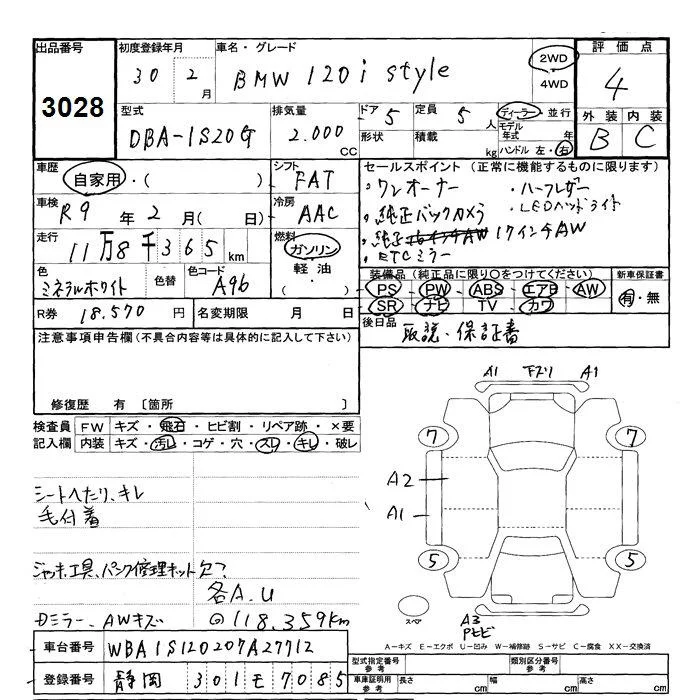 出品番号
3028
初度登録年月
30年 2月
車名・グレード
BMW 120i style
2WD
4WD
評価点
4
外装 内装
B C
型式
DBA-1S20G
排気量
2.000 CC
ドア 5
形状
定員 5 人
積載 kg
ディーラー・並行
モデル年式 年
ハンドル 左・右
車歴
自家用・( )
シフト
FAT
セールスポイント(正常に機能するものに限ります)
・ワンオーナー ・ハーフレザー
・純正バックカメラ ・LEDヘッドライト
・純正 17インチAW
・ETCミラー
車検
R9年 2月( 日)
冷房
AAC
走行
11万8千365km
燃料
ガソリン
軽油
( )
色
ミネラルホワイト
色替
色コード
A96
装備品(純正品に限り○をつけてください)
PS・PW・ABS・エアB・AW
SR・ナビ・TV・カワ
新車保証書
有・無
R券 18.570円
名変期限 月 日
後日品 取説・保証書
注意事項申告欄(不具合内容等は具体的に記入して下さい)
修復歴 有〔箇所 〕
検査員記入欄
FW キズ・飛石・ヒビ割・リペア跡・×要
内装 キズ・汚レ・コゲ・穴・スレ・キレ・破レ
シートへたり、キレ
毛付着
ジャッキ、工具、パンク修理キット欠?
各A.U
Dミラー、AWキズ
@118.359km
A1 下ズリ A1
7 7
A2
A1
5 5
スペア
A3
Pヒビ
A-キズ E-エクボ U-凹み W-補修跡 S-サビ C-腐食 XX-交換済
車台番号 WBA1S120207A27712
登録番号 静岡 301 モ 7085
型式指定番号 参考
類別区分番号 参考
車庫証明用 参考
長さ cm 幅 cm 高さ cm